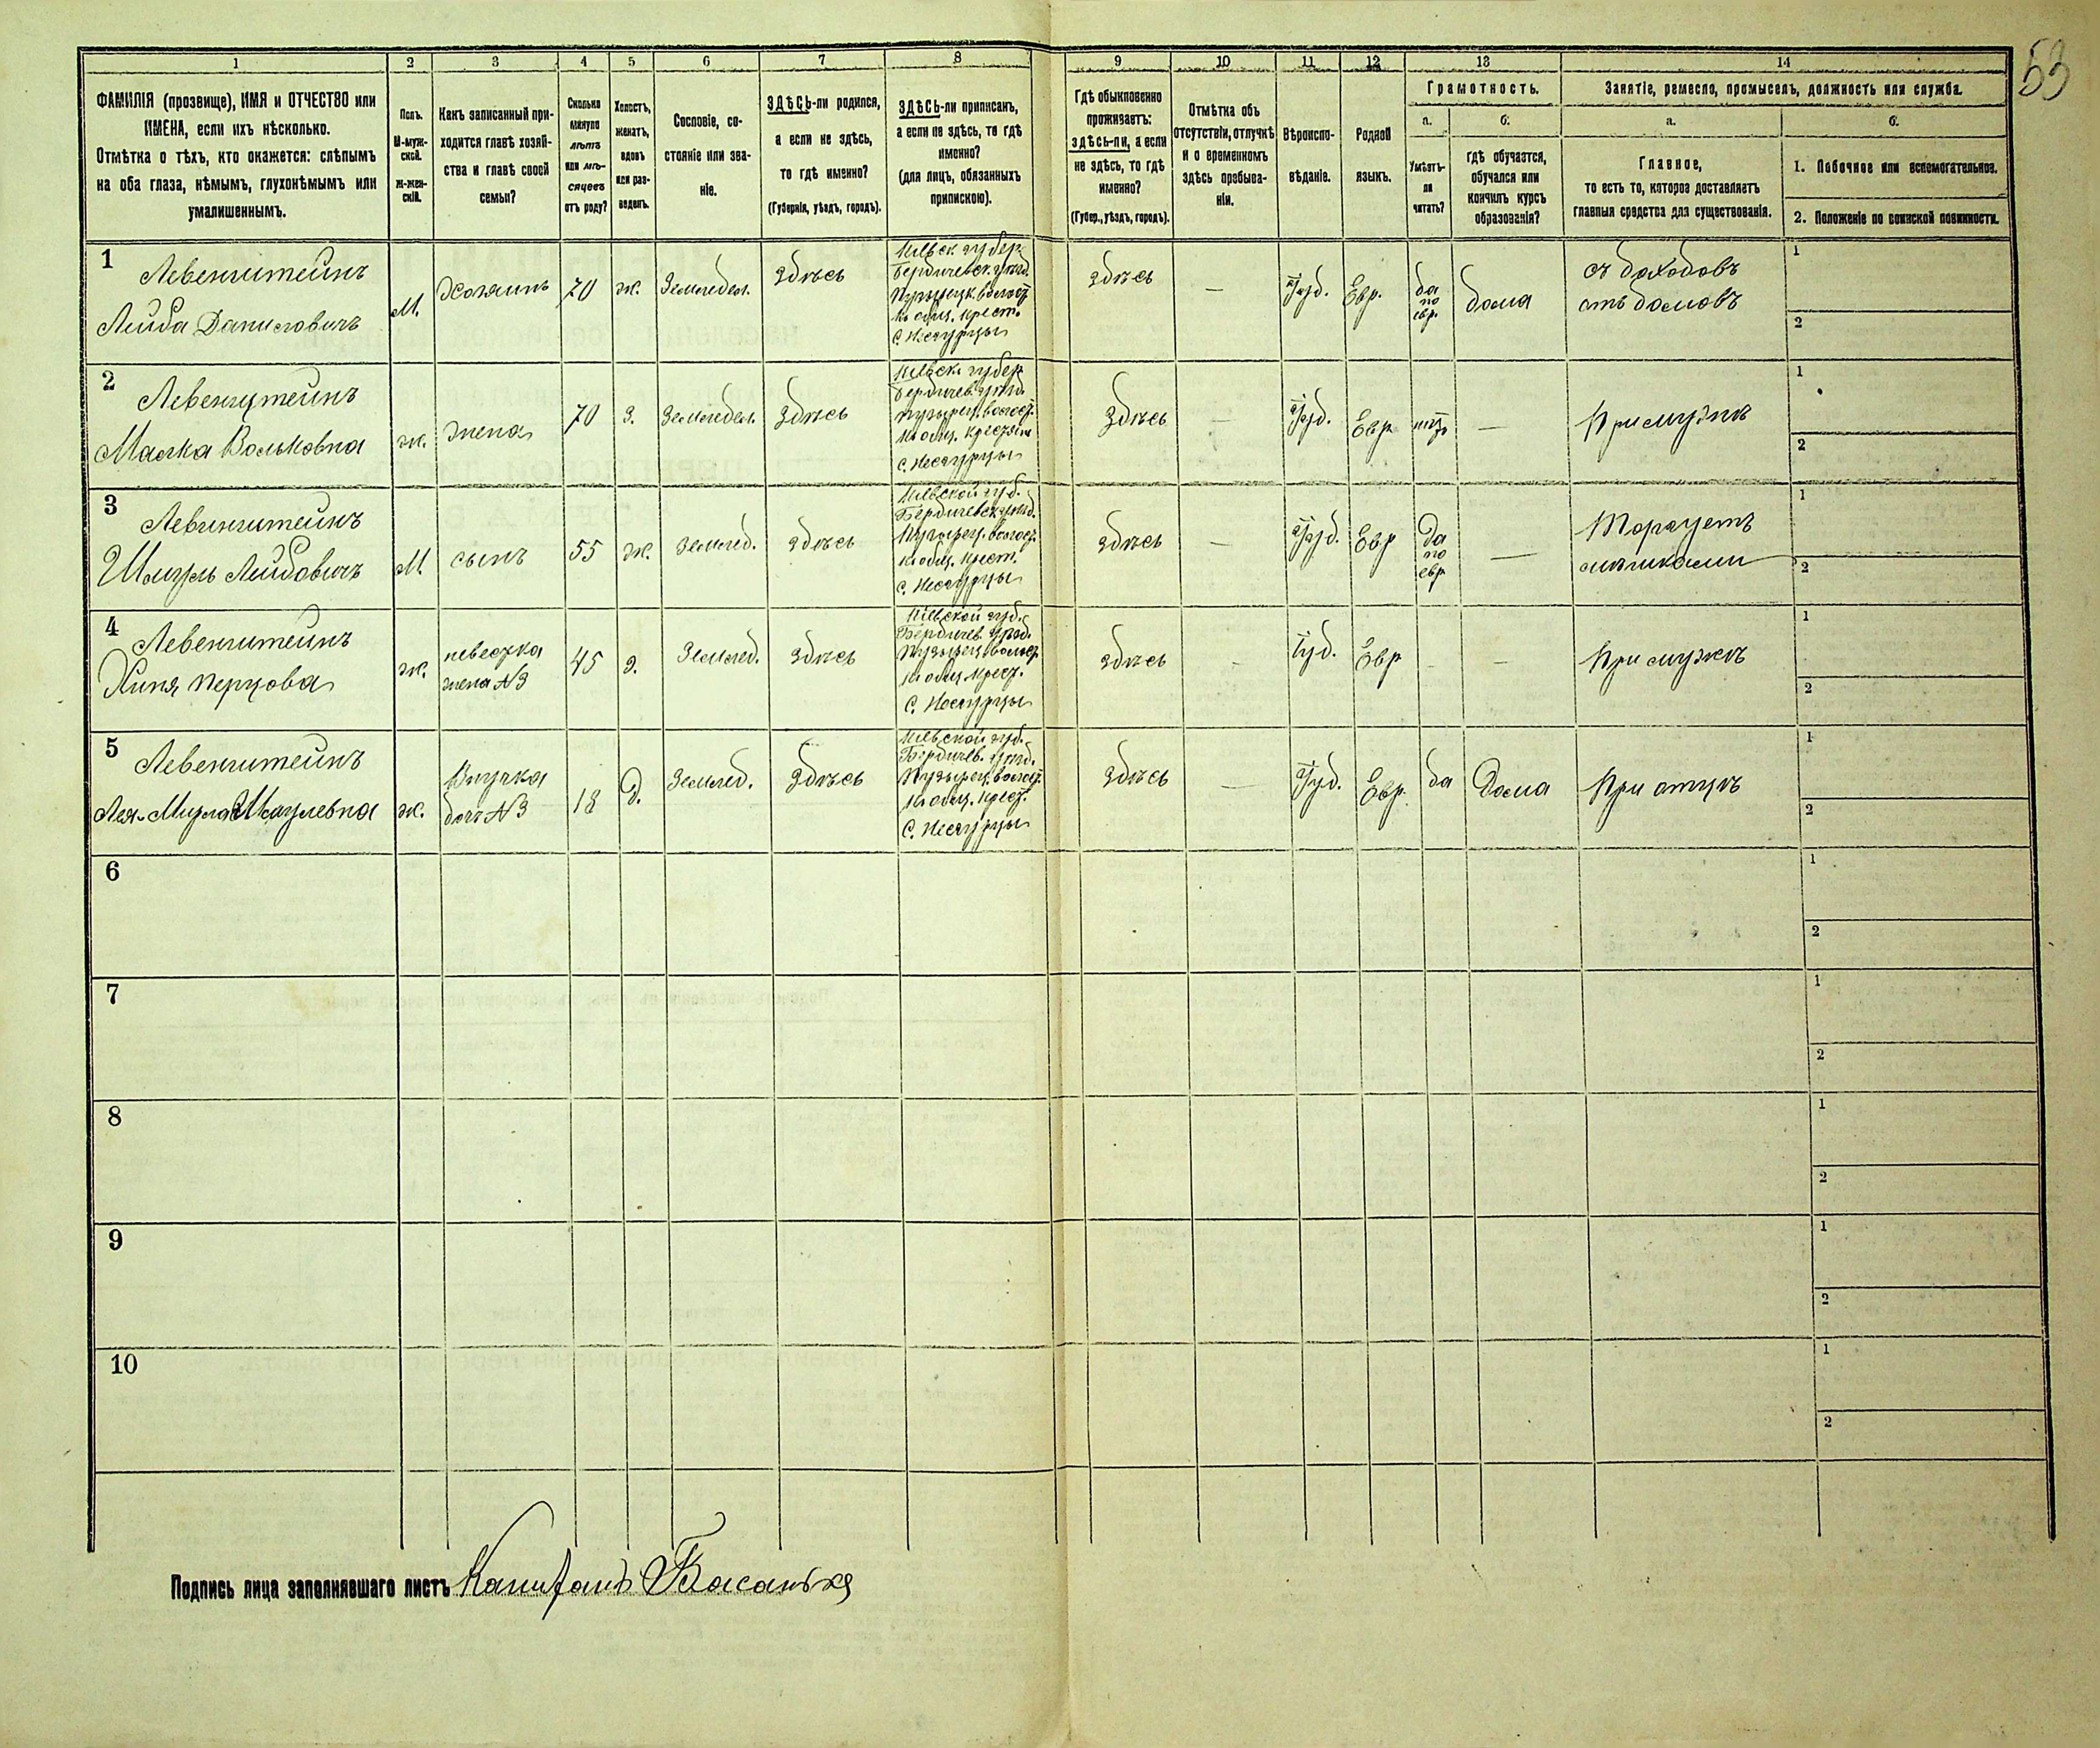 53
1 2 3 4 5 6 7 8 9 10 11 12 13 14
ФАМИЛІЯ (прозвище), ИМЯ и ОТЧЕСТВО или
ИМЕНА, если ихъ нѣсколько.
Отмѣтка о тѣхъ, кто окажется: слѣпымъ
на оба глаза, нѣмымъ, глухонѣмымъ или
умалишеннымъ.
Полъ.
М-муж-
ской.
Ж-жен-
скій.
Какъ записанный при-
ходится главѣ хозяй-
ства и главѣ своей
семьи?
Сколько
минуло
лѣтъ
или мѣ-
сяцевъ
отъ роду?
Холостъ,
женатъ,
вдовъ
или раз-
веденъ.
Сословіе, со-
стояніе или зва-
ніе.
ЗДѢСЬ-ли родился,
а если не здѣсь,
то гдѣ именно?
(Губернія, уѣздъ, городъ).
ЗДѢСЬ-ли приписанъ,
а если не здѣсь, то гдѣ
именно?
(для лицъ, обязанныхъ
припискою).
Гдѣ обыкновенно
проживаетъ:
здѣсь-ли, а если
не здѣсь, то гдѣ
именно?
(Губер., уѣздъ, городъ).
Отмѣтка объ
отсутствіи, отлучкѣ
и о временномъ
здѣсь пребыва-
ніи.
Вѣроиспо-
вѣданіе.
Родной
языкъ.
Грамотность.
а.
Умѣетъ-
ли
читать?
б.
гдѣ обучается,
обучался или
кончилъ курсъ
образованія?
Занятіе, ремесло, промыселъ, должность или служба.
а.
Главное,
то есть то, которое доставляетъ
главныя средства для существованія.
б.
1. Побочное или вспомогательное.
2. Положеніе по воинской повинности.
1
Левенштейнъ
Лейба Даниловичъ
М.
Хозяинъ
70
ж.
Земледел.
здѣсь
Кіевск. губер.
Бердичевск. уѣзд.
къ общ. крест.
здѣсь
—
Іуд.
Евр.
да
по
евр.
дома
съ доходовъ
отъ домовъ
1
2
2
Левенштейнъ
Малка Вольковна
ж.
жена
70
З.
Земледел.
Здѣсь
Кіевск. губер.
Бердичев. уѣзд.
къ общ. крестьян
Здѣсь
—
Іуд.
Евр
нѣтъ
—
При мужѣ
1
2
3
Левинштейнъ
Шмуль Лейбовичъ
М
сынъ
55
ж.
Землед.
здѣсь
Кіевской губ.
Бердичевск. уѣзд.
къ общ. крест.
здѣсь
—
Іуд.
Евр
Да
по
евр
—
Торгуетъ
1
2
4
Левенштейнъ
Хиня Перцова
ж.
невестка
жена №3
45
З.
Землед.
Здѣсь
Кіевской губ.
Бердичев. уѣзд.
къ общ. крест.
здѣсь
-
Іуд.
Евр
-
-
При мужѣ
1
2
5
Левенштейнъ
Лея-Мирля Шмулевна
ж.
Внучка
дочь №3
18
Д.
Землед.
Здѣсь
Кіевской губ.
Бердичев. уѣзд.
къ общ. крест.
Здѣсь
—
Іуд.
Евр.
да
Дома
При отцѣ
1
2
6
1
2
7
1
2
8
1
2
9
1
2
10
1
2
Подпись лица заполнявшаго листъ Капитанъ